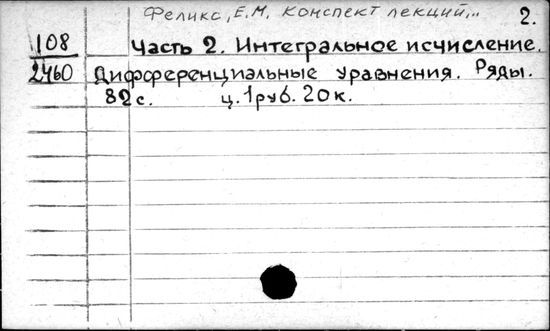 Феликс, Е.М. Конспект лекций,.. 2.
108 Часть 2. Интегральное исчисление.
2460 Дифференциальные уравнения. Ряды.
82 с. ц. 1 руб. 20 к.